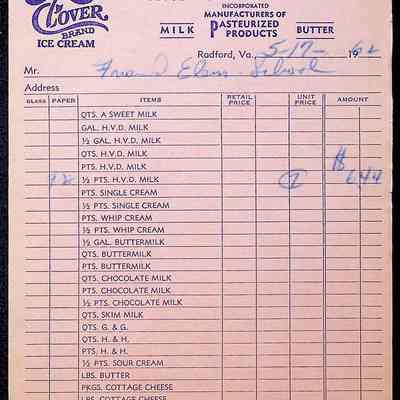 CLOVER
BRAND
ICE CREAM
INCORPORATED
MANUFACTURERS OF
MILK PASTEURIZED PRODUCTS BUTTER
Radford, Va., 5-17- 1962
Mr. Elem. School
Address
GLASS PAPER ITEMS RETAIL PRICE UNIT PRICE AMOUNT
QTS. A SWEET MILK
GAL. H.V.D. MILK
½ GAL. H.V.D. MILK
QTS. H.V.D. MILK
PTS. H.V.D. MILK $
½ PTS. H.V.D. MILK 7 644
PTS. SINGLE CREAM
½ PTS. SINGLE CREAM
PTS. WHIP CREAM
½ PTS. WHIP CREAM
½ GAL. BUTTERMILK
QTS. BUTTERMILK
PTS. BUTTERMILK
QTS. CHOCOLATE MILK
PTS. CHOCOLATE MILK
½ PTS. CHOCOLATE MILK
QTS. SKIM MILK
QTS. G. & G.
QTS. H. & H.
PTS. H. & H.
½ PTS. SOUR CREAM
LBS. BUTTER
PKGS. COTTAGE CHEESE
LBS. COTTAGE CHEESE